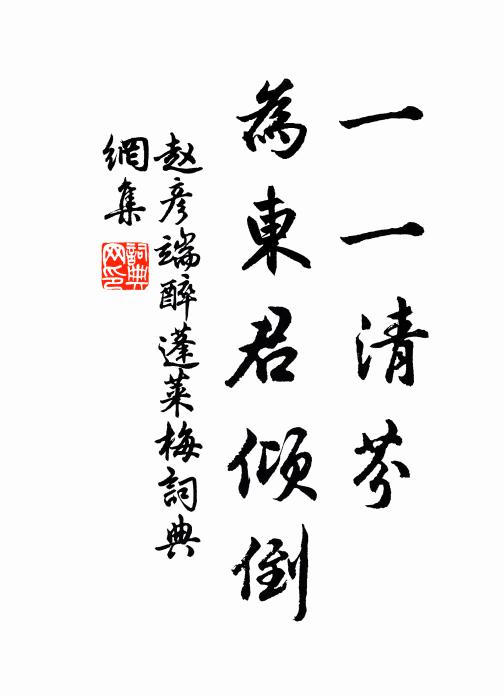 一一清芬
為東君傾倒
赵彦端醉蓬莱梅詞典
網集
詞典
网印